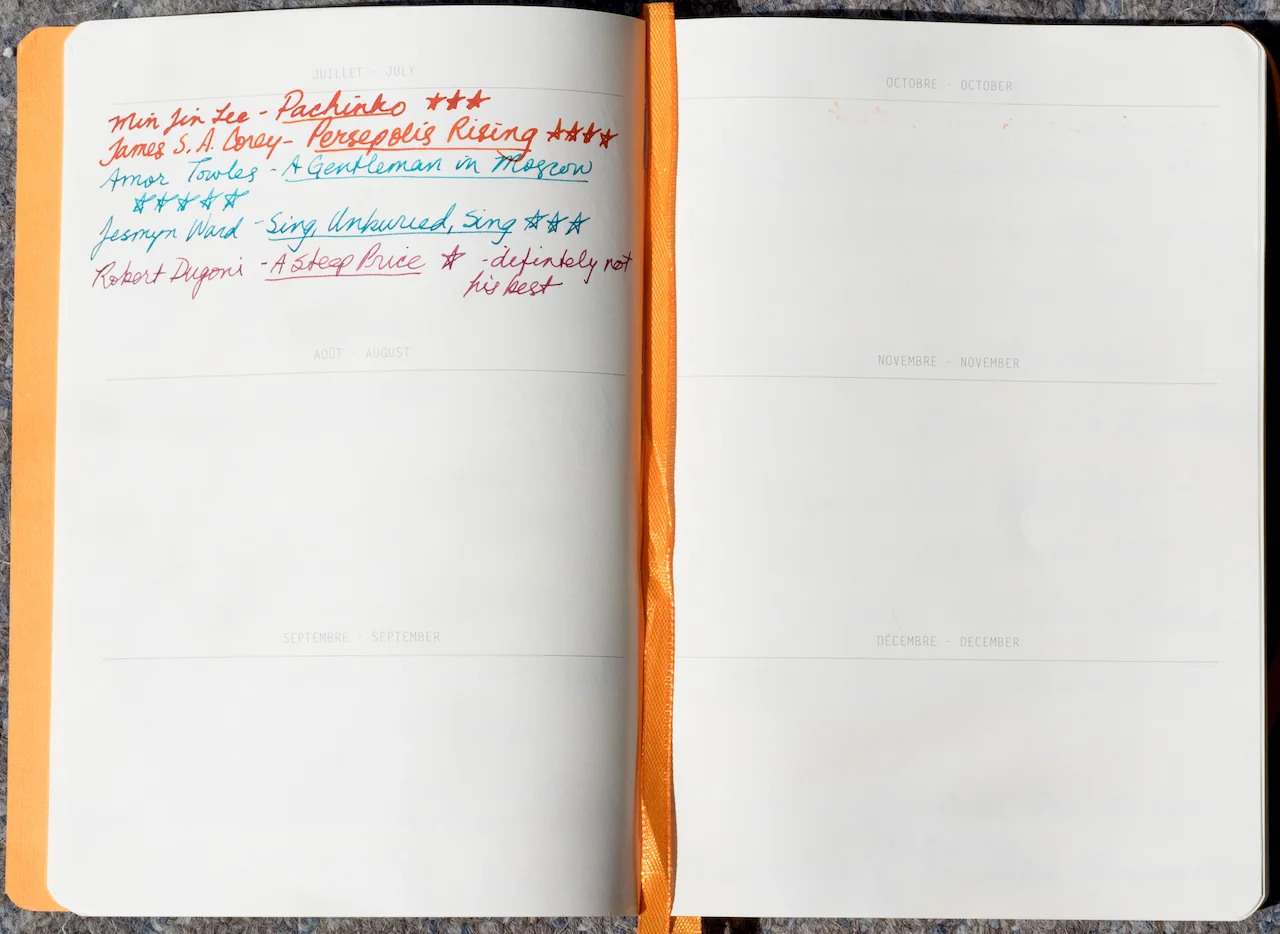 JUILLET - JULY
Min Jin Lee - Pachinko ★★★
James S. A. Corey - Persepolis Rising ★★★★
Amor Towles - A Gentleman in Moscow
★★★★★
Jesmyn Ward - Sing, Unburied, Sing ★★★
Robert Dugoni - A Steep Price ★ - defintely not
his best
AOÛT - AUGUST
SEPTEMBRE - SEPTEMBER
OCTOBRE - OCTOBER
NOVEMBRE - NOVEMBER
DÉCEMBRE - DECEMBER